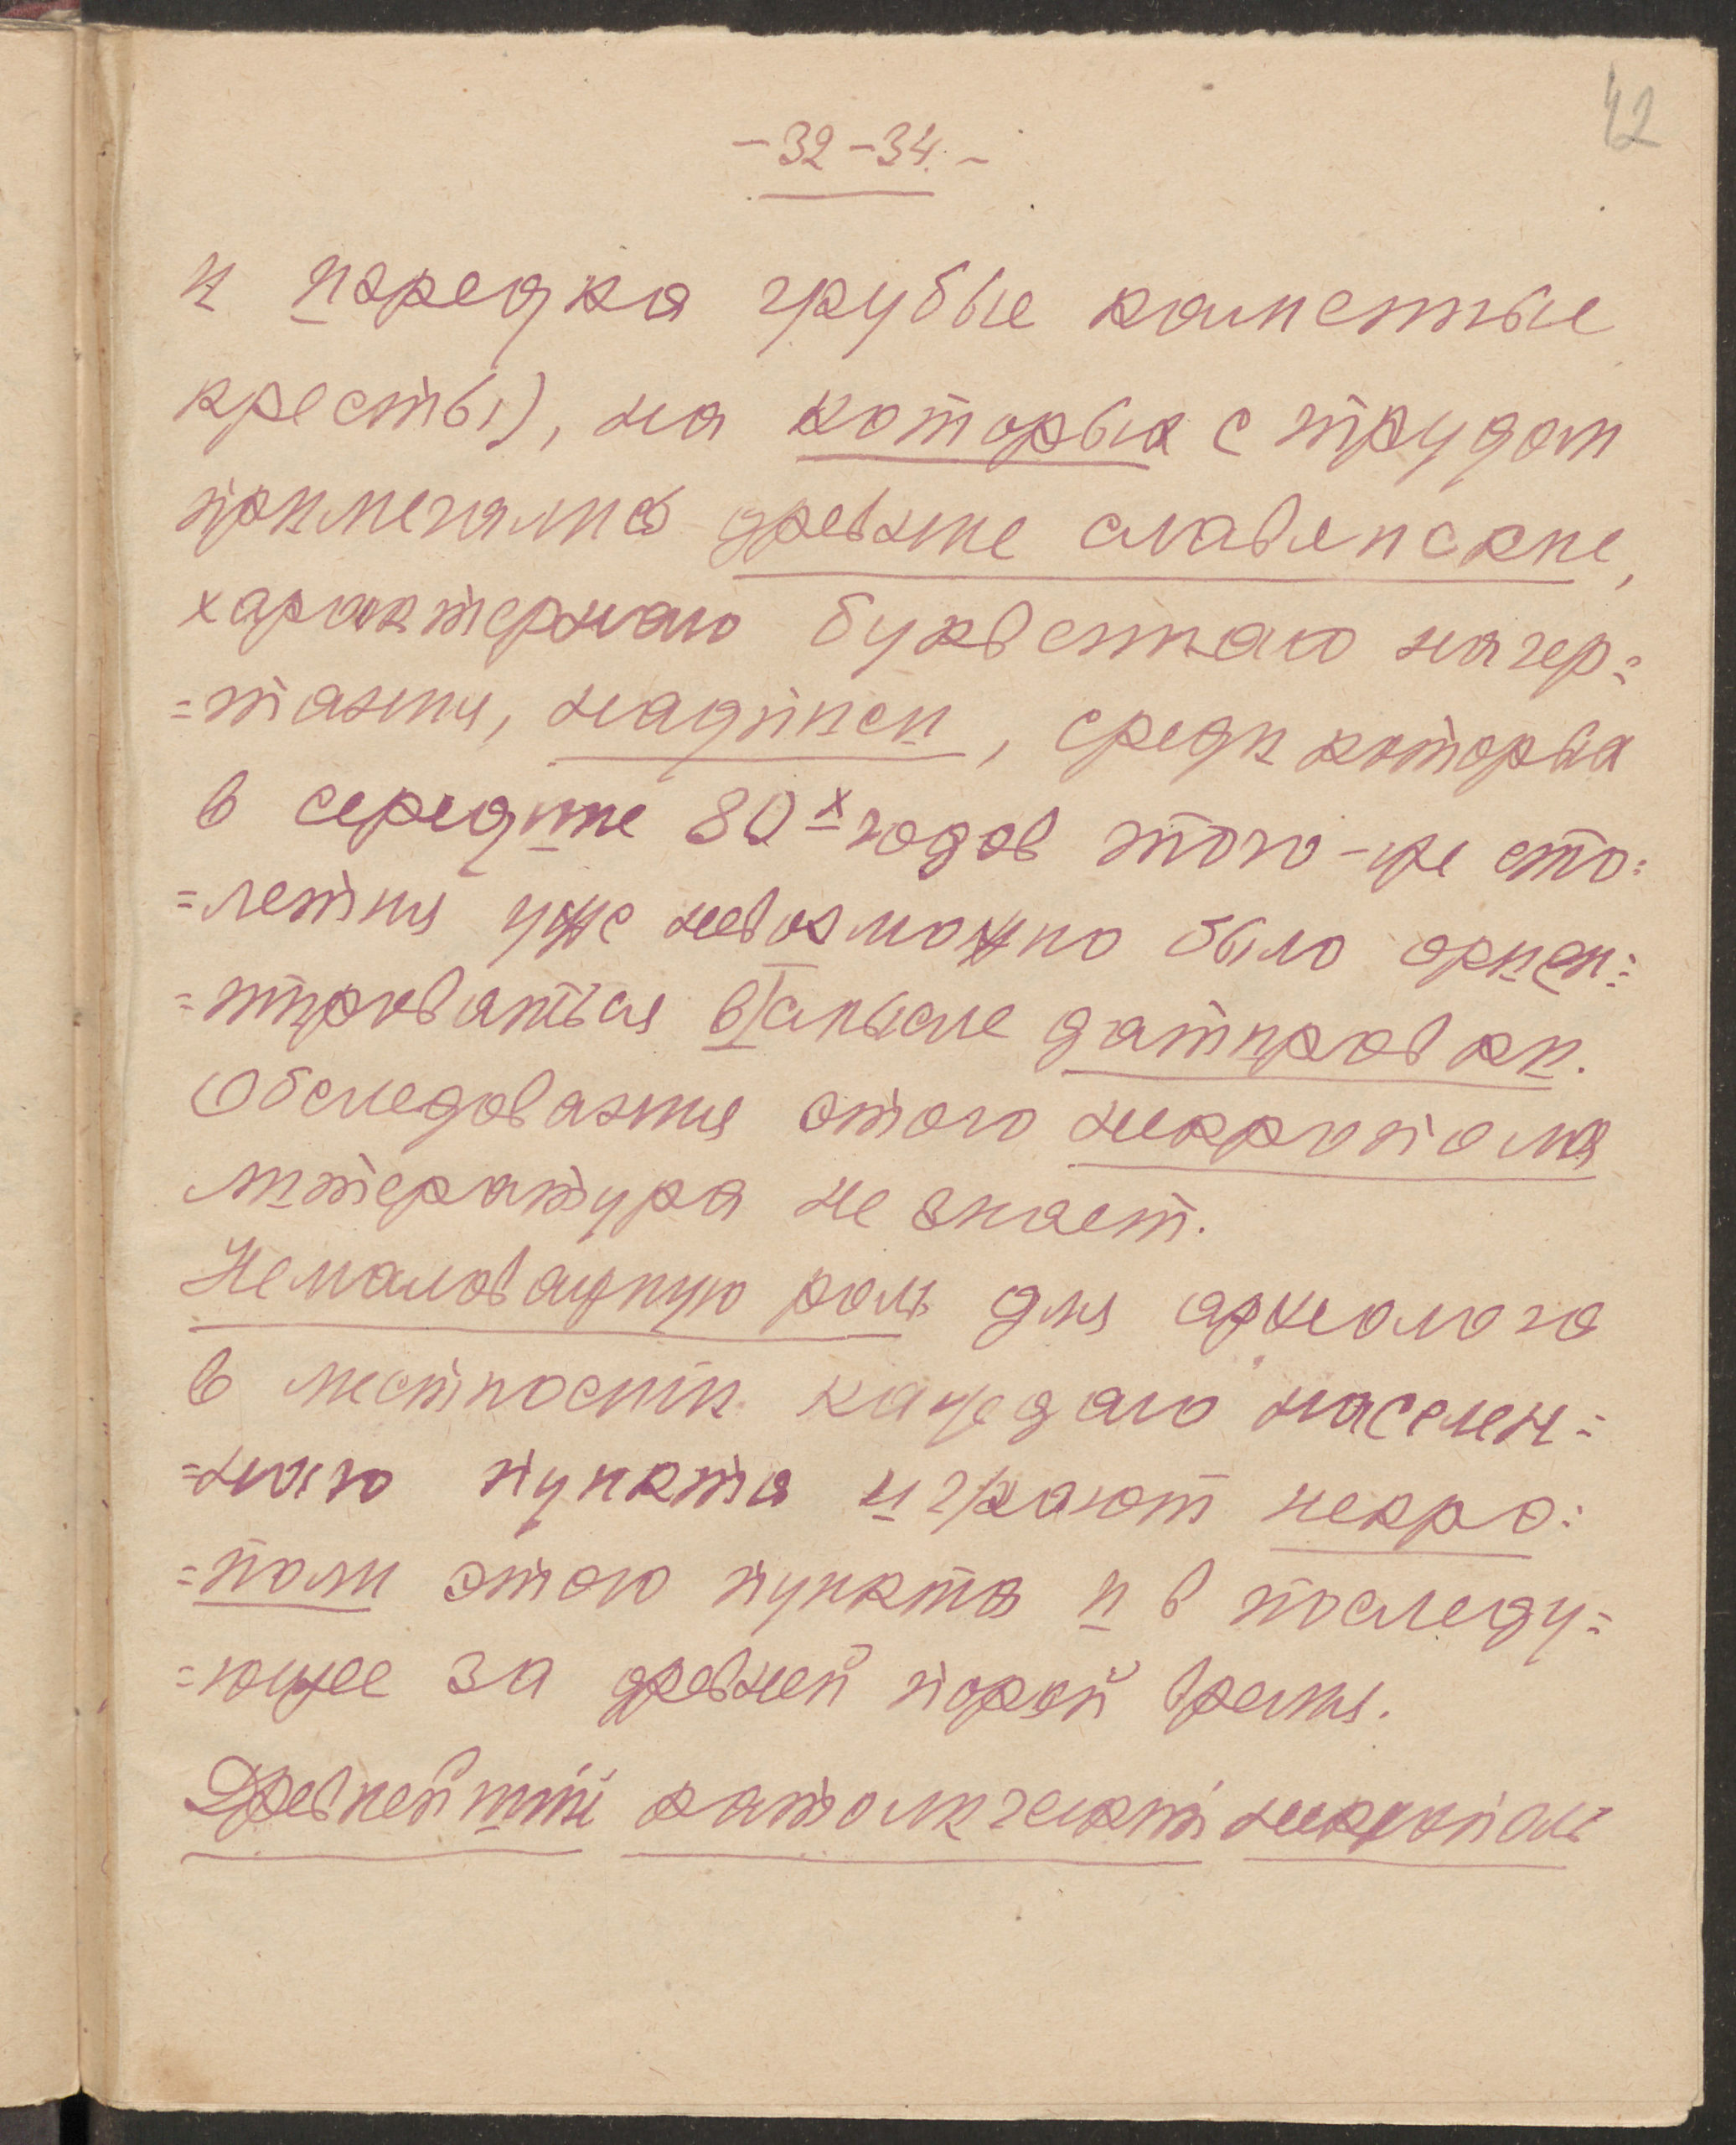 42
-32-34.-
и изредка грубые каменные
кресты), на которых с трудом
примечались древние славянские,
характернаго буквеннаго начер=
=тания, надписи, среди которых
в середине 80х годов этого-же сто=
=летия уже невозможно было ориен=
=тироваться в смысле датировки.
Обследования этого некрополя
литература не знает.
Немаловажную роль для археолога
в местности каждаго населен=
=наго пункта играют некро=
=поли этого пункта и в последу=
=ющее за древней порой время.
Древнейший католический некрополь